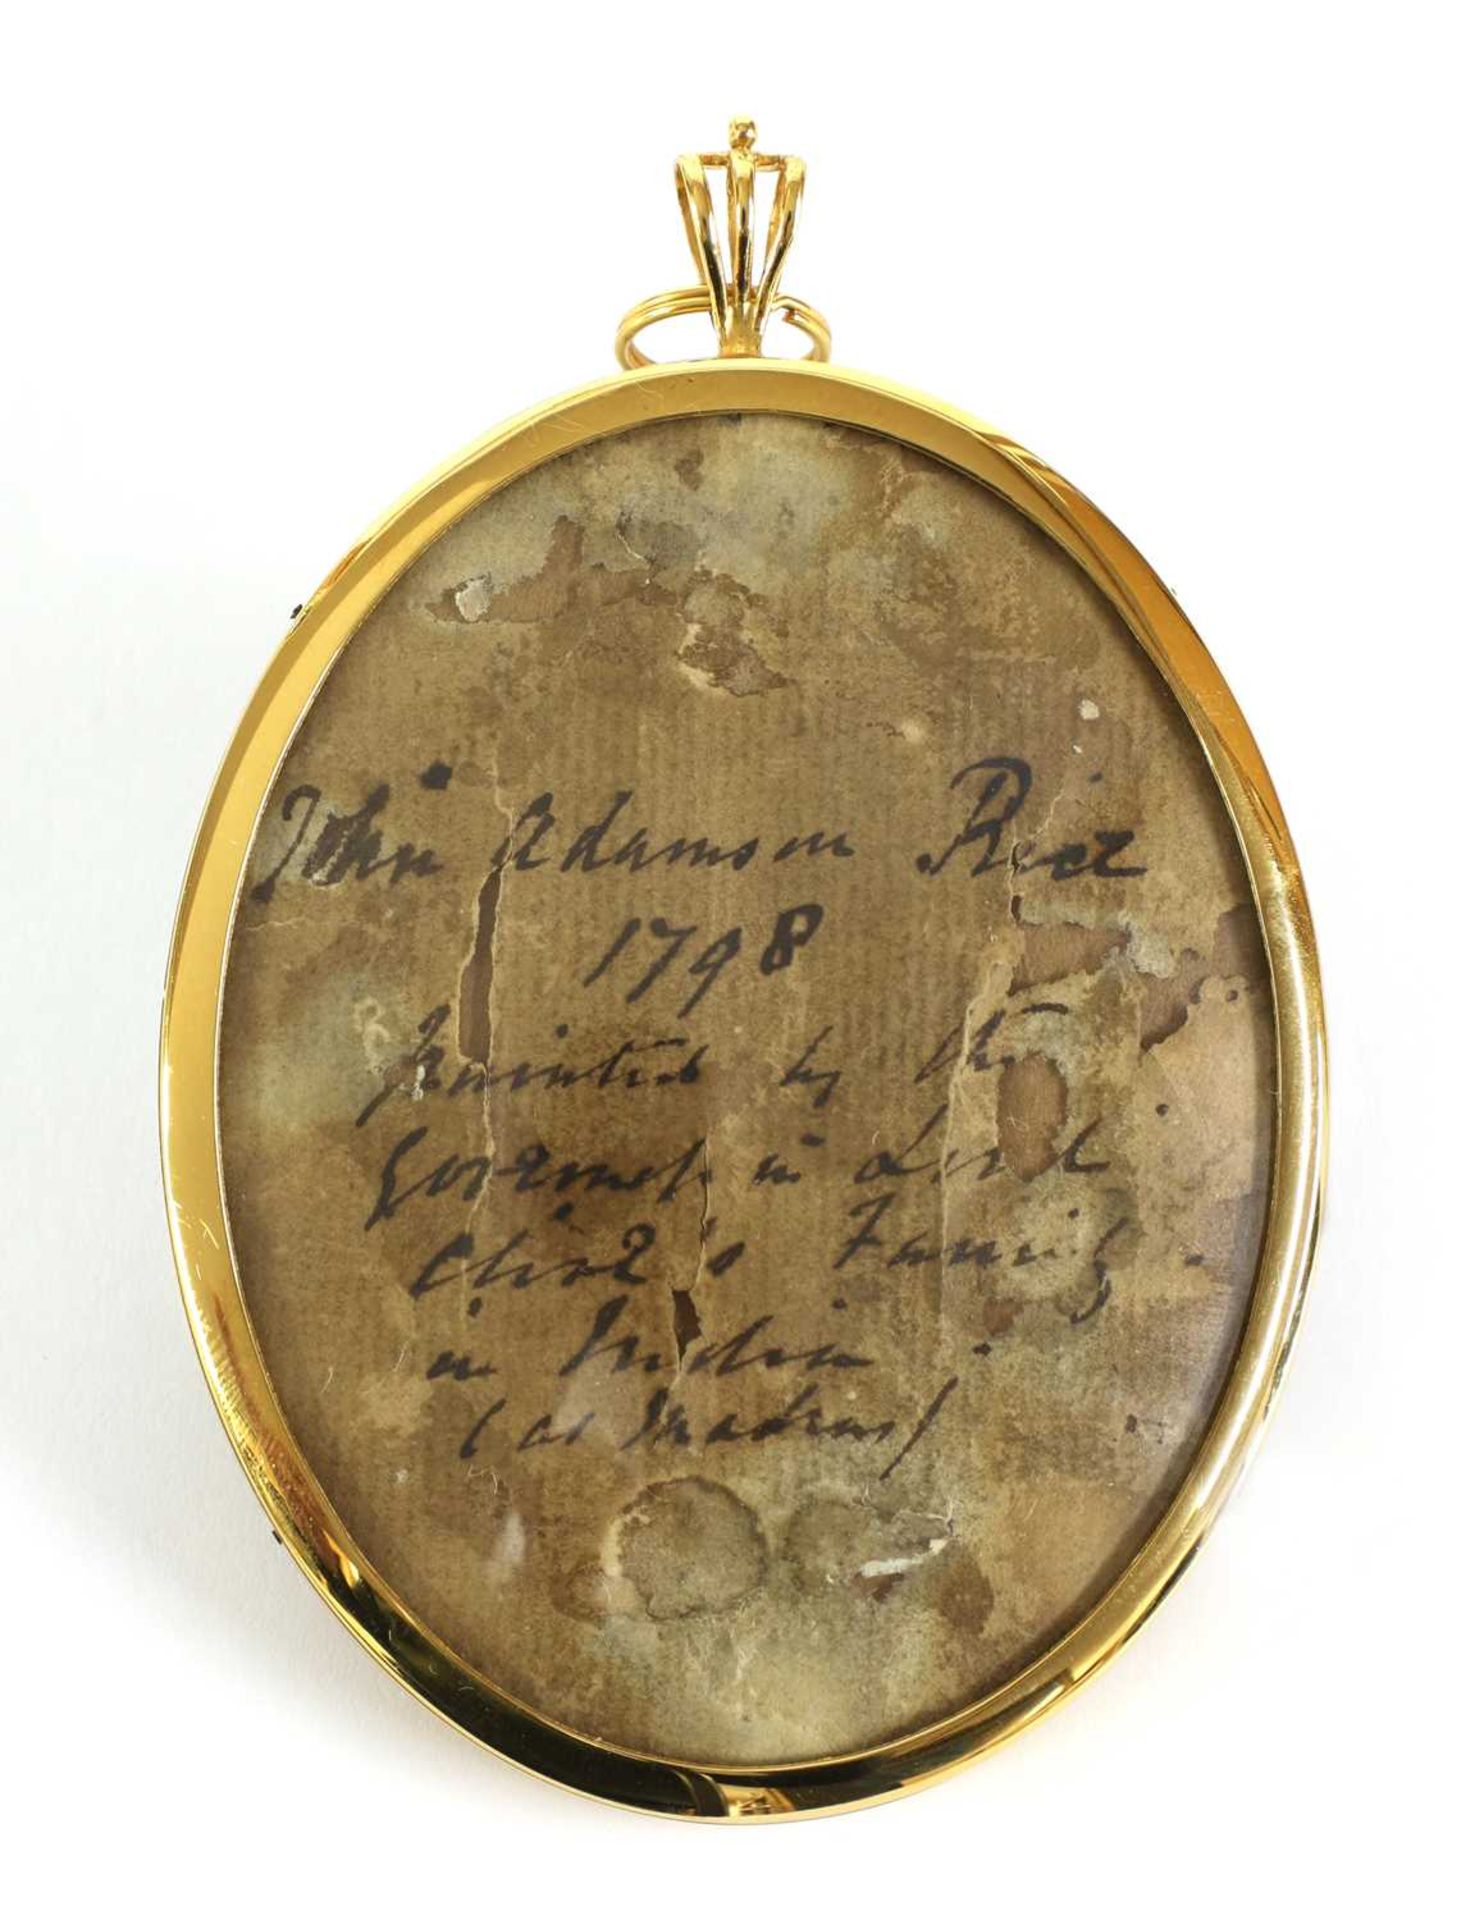 John Adamson Rice
1798
painted by the
Governess in Lord
Clive's Family
in India.
(at Madras)